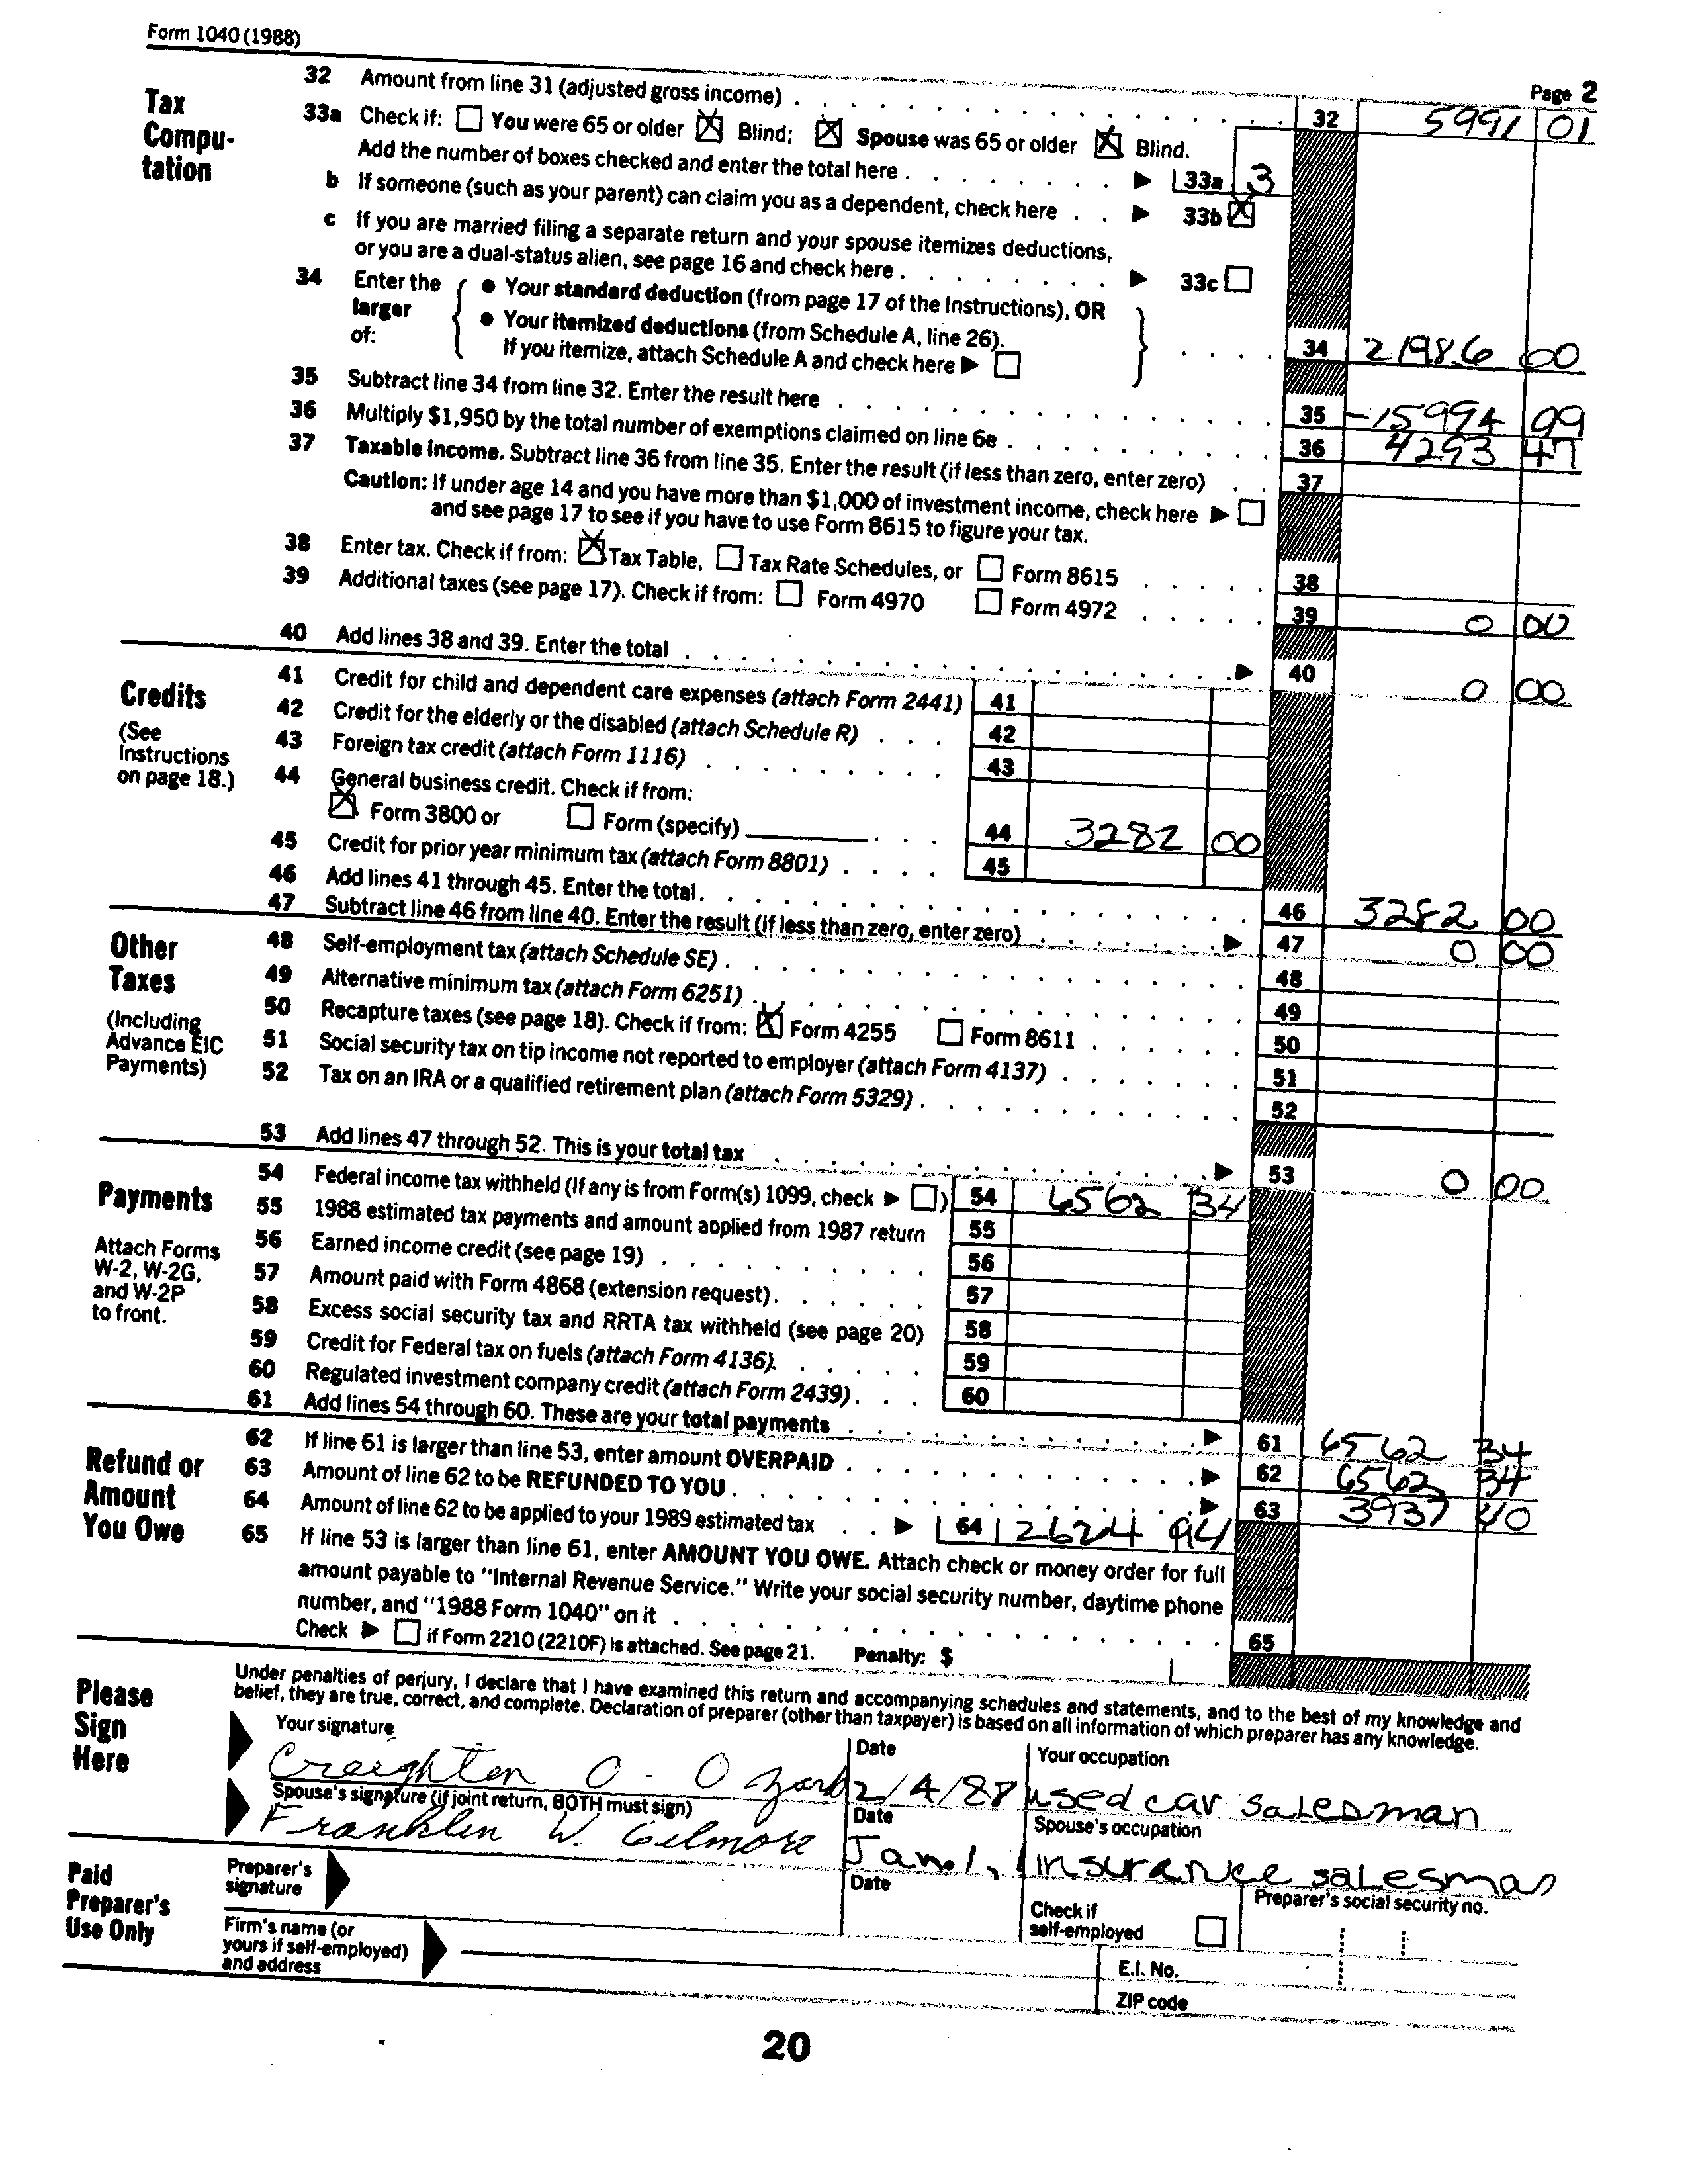 Form 1040 (1988)
Page 2
Tax Compu-tation
32 Amount from line 31 (adjusted gross income) . . . 32 5991 01
33a Check if: ☐ You were 65 or older ☒ Blind; ☒ Spouse was 65 or older ☒ Blind.
Add the number of boxes checked and enter the total here . . . ▶ 33a 3
b If someone (such as your parent) can claim you as a dependent, check here . . ▶ 33b ☒
c If you are married filing a separate return and your spouse itemizes deductions,
or you are a dual-status alien, see page 16 and check here . . . ▶ 33c ☐
34 Enter the larger of: { ● Your standard deduction (from page 17 of the Instructions), OR
● Your itemized deductions (from Schedule A, line 26).
If you itemize, attach Schedule A and check here ▶ ☐ } . . . . 34 21986 00
35 Subtract line 34 from line 32. Enter the result here . . . 35 -15994 99
36 Multiply $1,950 by the total number of exemptions claimed on line 6e . . . 36 4293 47
37 Taxable income. Subtract line 36 from line 35. Enter the result (if less than zero, enter zero) . . 37
Caution: If under age 14 and you have more than $1,000 of investment income, check here ▶ ☐
and see page 17 to see if you have to use Form 8615 to figure your tax.
38 Enter tax. Check if from: ☒ Tax Table, ☐ Tax Rate Schedules, or ☐ Form 8615 . . . . . 38
39 Additional taxes (see page 17). Check if from: ☐ Form 4970 ☐ Form 4972 . . . . . 39 0 00
40 Add lines 38 and 39. Enter the total . . . ▶ 40 0 00
Credits
(See Instructions on page 18.)
41 Credit for child and dependent care expenses (attach Form 2441) 41
42 Credit for the elderly or the disabled (attach Schedule R) . . . 42
43 Foreign tax credit (attach Form 1116) . . . 43
44 General business credit. Check if from:
☒ Form 3800 or ☐ Form (specify) ________ . . . 44 3282 00
45 Credit for prior year minimum tax (attach Form 8801) . . . . 45
46 Add lines 41 through 45. Enter the total. . . . 46 3282 00
47 Subtract line 46 from line 40. Enter the result (if less than zero, enter zero) . . . ▶ 47 0 00
Other Taxes
(Including Advance EIC Payments)
48 Self-employment tax (attach Schedule SE) . . . 48
49 Alternative minimum tax (attach Form 6251) . . . 49
50 Recapture taxes (see page 18). Check if from: ☒ Form 4255 ☐ Form 8611 . . . . . 50
51 Social security tax on tip income not reported to employer (attach Form 4137) . . . 51
52 Tax on an IRA or a qualified retirement plan (attach Form 5329) . . . 52
53 Add lines 47 through 52. This is your total tax . . . ▶ 53 0 00
Payments
Attach Forms W-2, W-2G, and W-2P to front.
54 Federal income tax withheld (If any is from Form(s) 1099, check ▶ ☐) 54 6562 34
55 1988 estimated tax payments and amount applied from 1987 return 55
56 Earned income credit (see page 19) . . . 56
57 Amount paid with Form 4868 (extension request). . . . 57
58 Excess social security tax and RRTA tax withheld (see page 20) 58
59 Credit for Federal tax on fuels (attach Form 4136). . . . 59
60 Regulated investment company credit (attach Form 2439) . . . 60
61 Add lines 54 through 60. These are your total payments . . . ▶ 61 6562 34
Refund or Amount You Owe
62 If line 61 is larger than line 53, enter amount OVERPAID . . . ▶ 62 6562 34
63 Amount of line 62 to be REFUNDED TO YOU . . . ▶ 63 3937 40
64 Amount of line 62 to be applied to your 1989 estimated tax . . ▶ 64 2624 94
65 If line 53 is larger than line 61, enter AMOUNT YOU OWE. Attach check or money order for full
amount payable to "Internal Revenue Service." Write your social security number, daytime phone
number, and "1988 Form 1040" on it . . . 65
Check ▶ ☐ if Form 2210 (2210F) is attached. See page 21. Penalty: $
Please Sign Here
Under penalties of perjury, I declare that I have examined this return and accompanying schedules and statements, and to the best of my knowledge and
belief, they are true, correct, and complete. Declaration of preparer (other than taxpayer) is based on all information of which preparer has any knowledge.
Your signature Date Your occupation
Creighton O. Ozark 2/4/88 used car salesman
Spouse's signature (if joint return, BOTH must sign) Date Spouse's occupation
Franklin W. Gilmore Jan. 1, insurance salesman
Paid Preparer's Use Only
Preparer's signature Date Check if self-employed ☐ Preparer's social security no.
Firm's name (or yours if self-employed) and address
E.I. No.
ZIP code
20